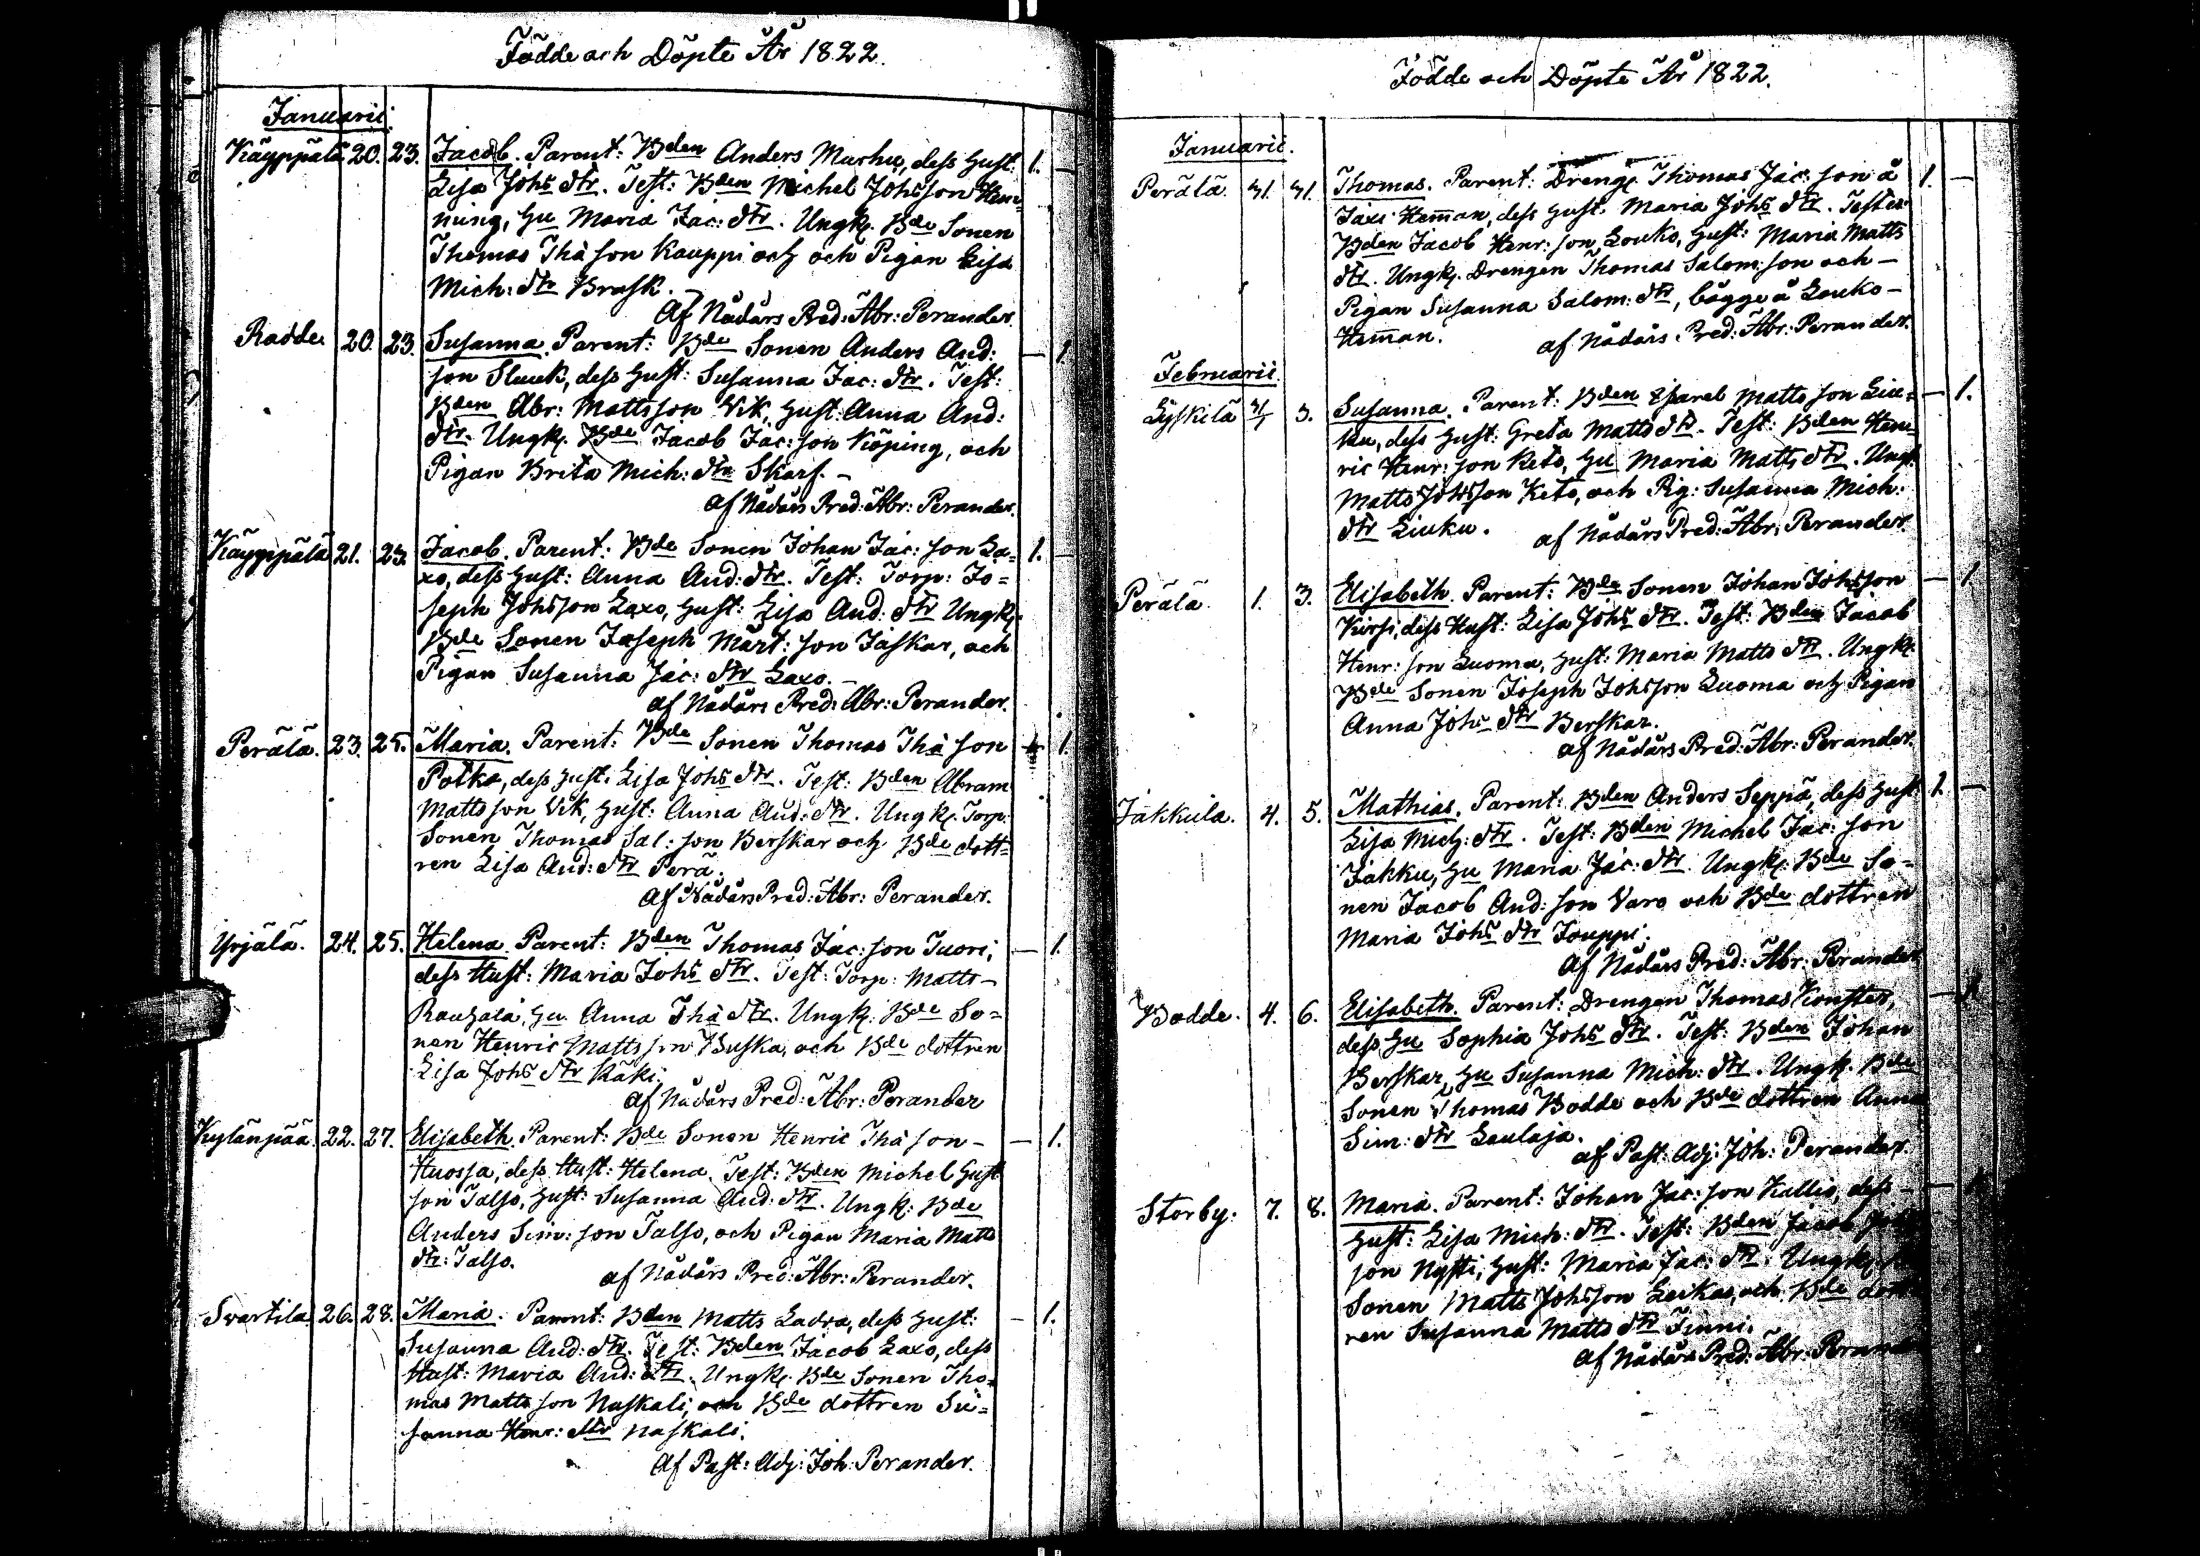 Födde och Döpte År 1822.
Januarii.
Käyppälä 20. 23. Jacob. Parent: Bden Anders Marku, dess Hust: 1. —
Lisa Johs dtr. Test: Bden Michel Johsson Hen=
ning, Hu Maria Jac: dtr. Ungk. Bde Sonen
Thomas Thåson Kauppi och och Pigan Lisa
Mich: dtr Brask. —
Af Nådårs Pred: Abr: Perander.
Radde 20. 23. Susanna. Parent: Bde Sonen Anders And: — 1.
son Sluuk, dess Hust: Susanna Jac: dtr. Test:
Bden Abr: Mattsson Vik, Hust: Anna And:
dtr. Ungk. Bde Jacob Jac: son Köping, och
Pigan Brita Mich: dtr Skarf. —
af Nådårs Pred: Abr: Perander.
Käyppälä 21. 23. Jacob. Parent: Bde Sonen Johan Jac: son La= 1. —
xo, dess Hust: Anna And: dtr. Test: Torp: Jo=
seph Johsson Laxo, Hust: Lisa And: dtr Ungk.
Bde Sonen Joseph Mårt: son Jåskar, och
Pigan Susanna Jac: dtr Laxo. —
af Nådårs Pred: Abr: Perander.
Perälä. 23. 25. Maria. Parent: Bde Sonen Thomas Thåson — 1.
Potka, dess Hust: Lisa Johs dtr. Test: Bden Abram
Mattsson Vik, Hust: Anna And: dtr. Ungk. Torp:
Sonen Thomas Sal: son Berskar och Bde dott=
ren Lisa And: dtr Perä.
af Nådårs Pred: Abr: Perander.
Yrjälä. 24. 25. Helena. Parent: Bden Thomas Jac: son Tuori, — 1.
dess Hust: Maria Johs dtr. Test: Torp: Matts —
Hu Anna Thå dtr. Ungk: Bde So=
nen Henric Mattsson Buska, och Bde dottren
Lisa Johs dtr Käki.
af Nådårs Pred: Abr: Perander
Kylänpää. 22. 27. Elisabeth. Parent: Bde Sonen Henric Thåson — — 1.
Huossa, dess Hust: Helena. Test: Bden Michel Gust
son Talso, Hust: Susanna And: dtr. Ungk: Bde
Anders Sim: son Talso, och Pigan Maria Matts
dtr: Talso.
af Nådårs Pred: Abr: Perander.
Svartila 26. 28. Maria. Parent: Bden Matts Ladva, dess Hust: — 1.
Susanna And: dtr. Test: Bden Jacob Laxo, dess
Hust: Maria And: dtr. Ungk. Bde Sonen Tho=
mas Mattsson Naskali, och Bde dottren Su=
sanna Henr: dtr Naskali.
Af Past: Adj: Joh: Perander.
Födde och Döpte År 1822.
Januarii.
Perälä. 31. 31. Thomas. Parent: Dreng. Thomas Jac: son å 1. —
Jåxs Heman, dess Hust: Maria Johs dtr. Test:
Bden Jacob Henr: son Louko, Hust: Maria Matts
dtr. Ungk. Drengen Thomas Salom: son och —
Pigan Susanna Salom: dtr, bägge å Louko —
Heman.
af Nådårs Pred: Abr: Perander.
Februarii.
Lyskilä 31/1 3. Susanna. Parent: Bden Isarel Matts son Liu= — 1.
ku, dess Hust: Greta Matts dtr. Test: Bden Hen=
ric Henr: son Keto, Hu Maria Matts dtr. Ungk.
Matts Johsson Keto, och Pig: Susanna Mich:
dtr Liuku.
af Nådårs Pred: Abr: Perander.
Perälä. 1. 3. Elisabeth. Parent: Bde Sonen Johan Johsson — 1.
Kirsi, dess Hust: Lisa Johs dtr. Test: Bden Jacob
Henr: son Luoma, Hust: Maria Matts dtr. Ungk.
Bde Sonen Joseph Johsson Luoma och Pigan
Anna Johs dtr Berskar.
af Nådårs Pred: Abr: Perander.
Jakkula. 4. 5. Mathias. Parent: Bden Anders Seppä, dess Hust: 1. —
Lisa Mich: dtr. Test: Bden Michel Jac: son
Jakku, Hu Maria Jac: dtr. Ungk. Bde So=
nen Jacob And: son Varo och Bde dottren
Maria Johs dtr Jouppi.
af Nådårs Pred: Abr: Perander
Bodde. 4. 6. Elisabeth. Parent: Drengen Thomas Konster, —
dess Hu Sophia Johs dtr. Test: Bden Johan
Berskar, Hu Susanna Mich: dtr. Ungk. Bde
Sonen Thomas Bodde och Bde dottren Anna
Sim: dtr Laulaja.
af Past: Adj: Joh: Perander.
Storby. 7. 8. Maria. Parent: Johan Jac: son Kallio, dess —
Hust: Lisa Mich: dtr. Test: Bden Jacob
son Nysti, Hust: Maria Jac: dtr. Ungk.
Sonen Matts Johsson Leikas, och Bde dott
ren Susanna Matts dtr Finni.
af Nådårs Pred: Abr: Perand